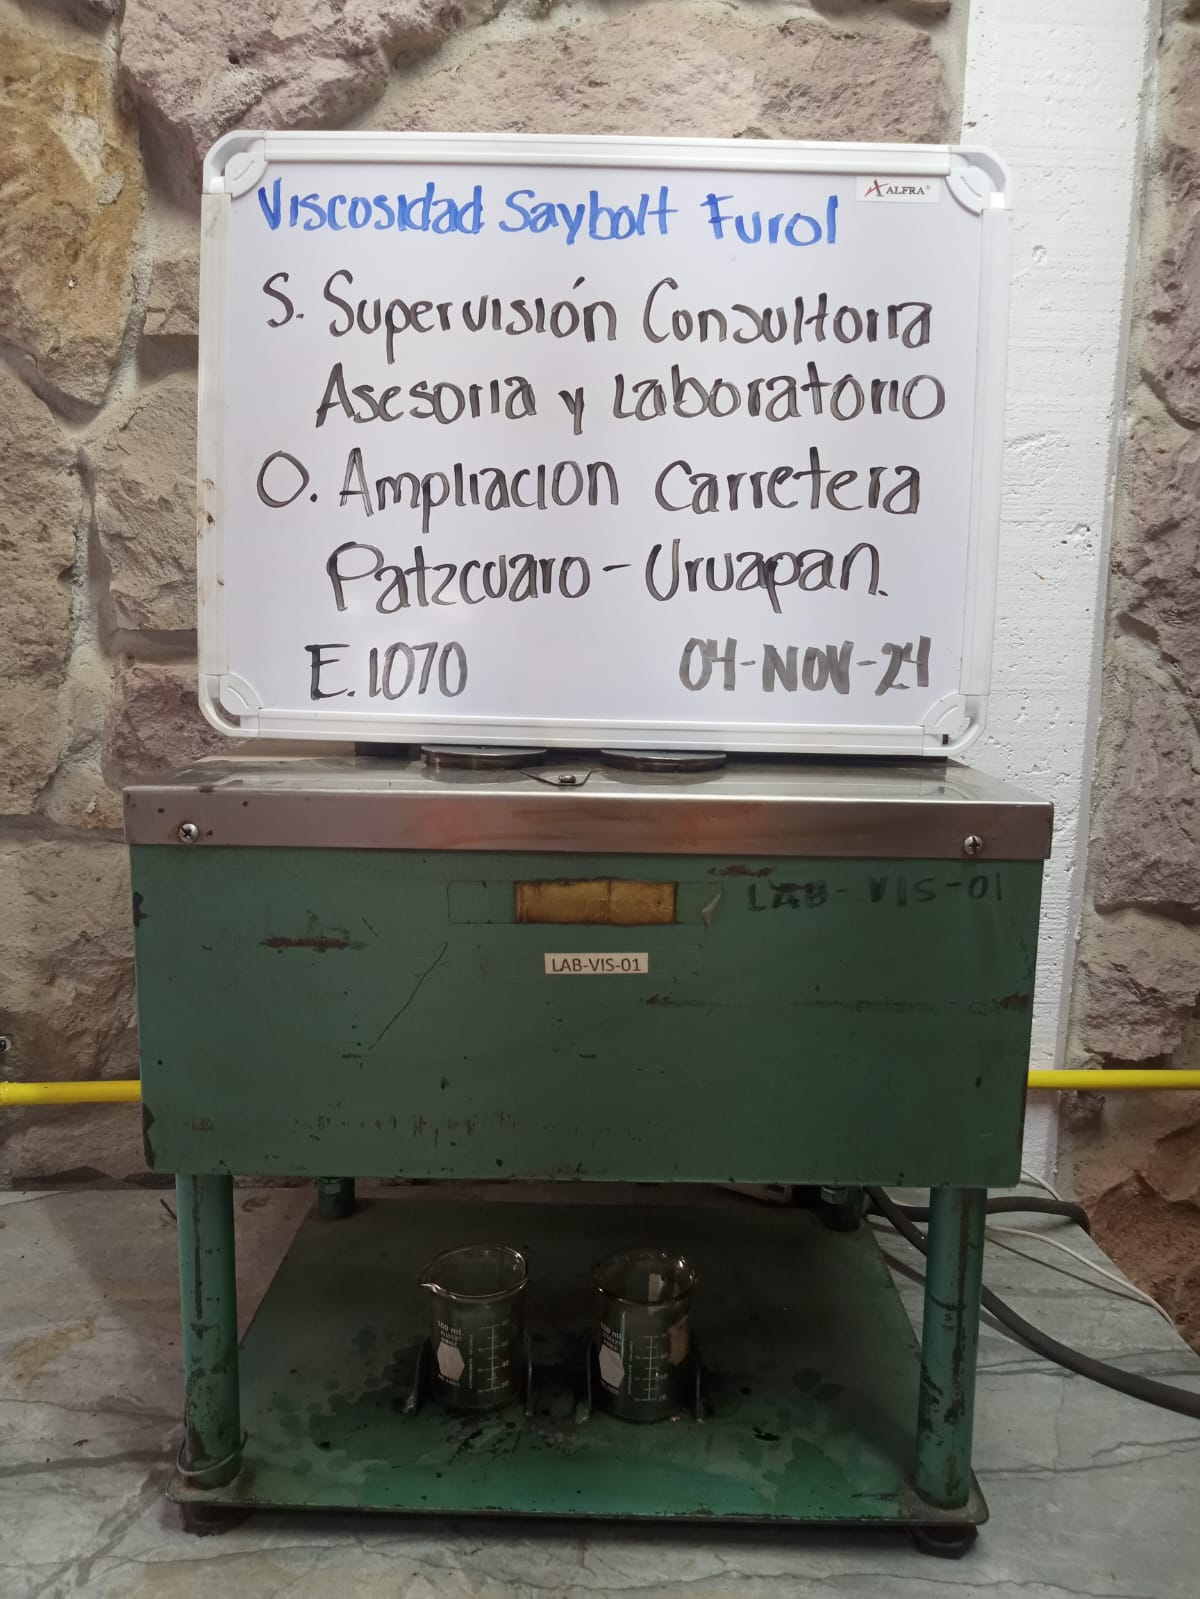 ALFRA®
Viscosidad Saybolt Furol
S. Supervisión Consultoria
Asesoria y Laboratorio
O. Ampliacion Carretera
Patzcuaro - Uruapan.
E. 1070 04-NOV-24
LAB-VIS-01
LAB-VIS-01
100 mL
40
20